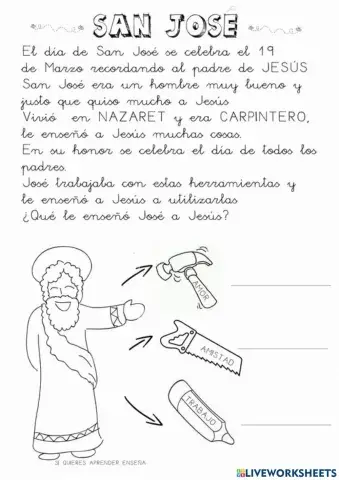 SAN JOSÉ
El día de San José se celebra el 19
de Marzo recordando al padre de JESÚS
San José era un hombre muy bueno y
justo que quiso mucho a Jesús
Vivió en NAZARET y era CARPINTERO,
le enseñó a Jesús muchas cosas.
En su honor se celebra el día de todos los
padres.
José trabajaba con estas herramientas y
le enseñó a Jesús a utilizarlas
¿Qué le enseñó José a Jesús?
AMOR
AMISTAD
TRABAJO
SI QUIERES APRENDER ENSEÑA
LIVEWORKSHEETS